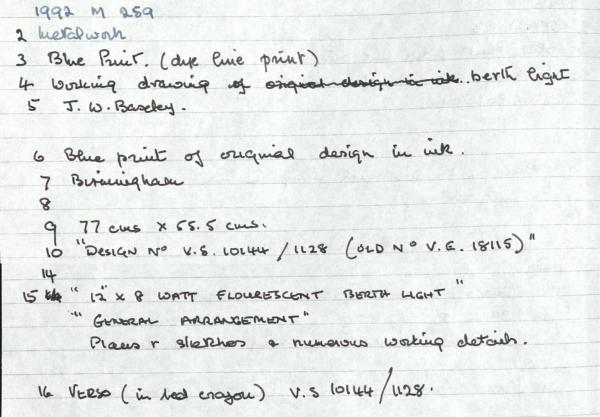 1992 M 259
2 Metalwork
3 Blue Print. (dye line print)
4 Working drawing of original design in ink.. berth light
5 J. W. Baseley.
6 Blue print of original design in ink.
7 Birmingham
8
9 77 cms x 55.5 cms.
10 "DESIGN Nº V.S. 10144 / 1128 (OLD Nº V.E. 18115)"
14
15 "12" x 8 WATT FLOURESCENT BERTH LIGHT"
"GENERAL ARRANGEMENT"
Plans + sketches & numerous working details.
16 VERSO (in red crayon) V.S 10144 / 1128.